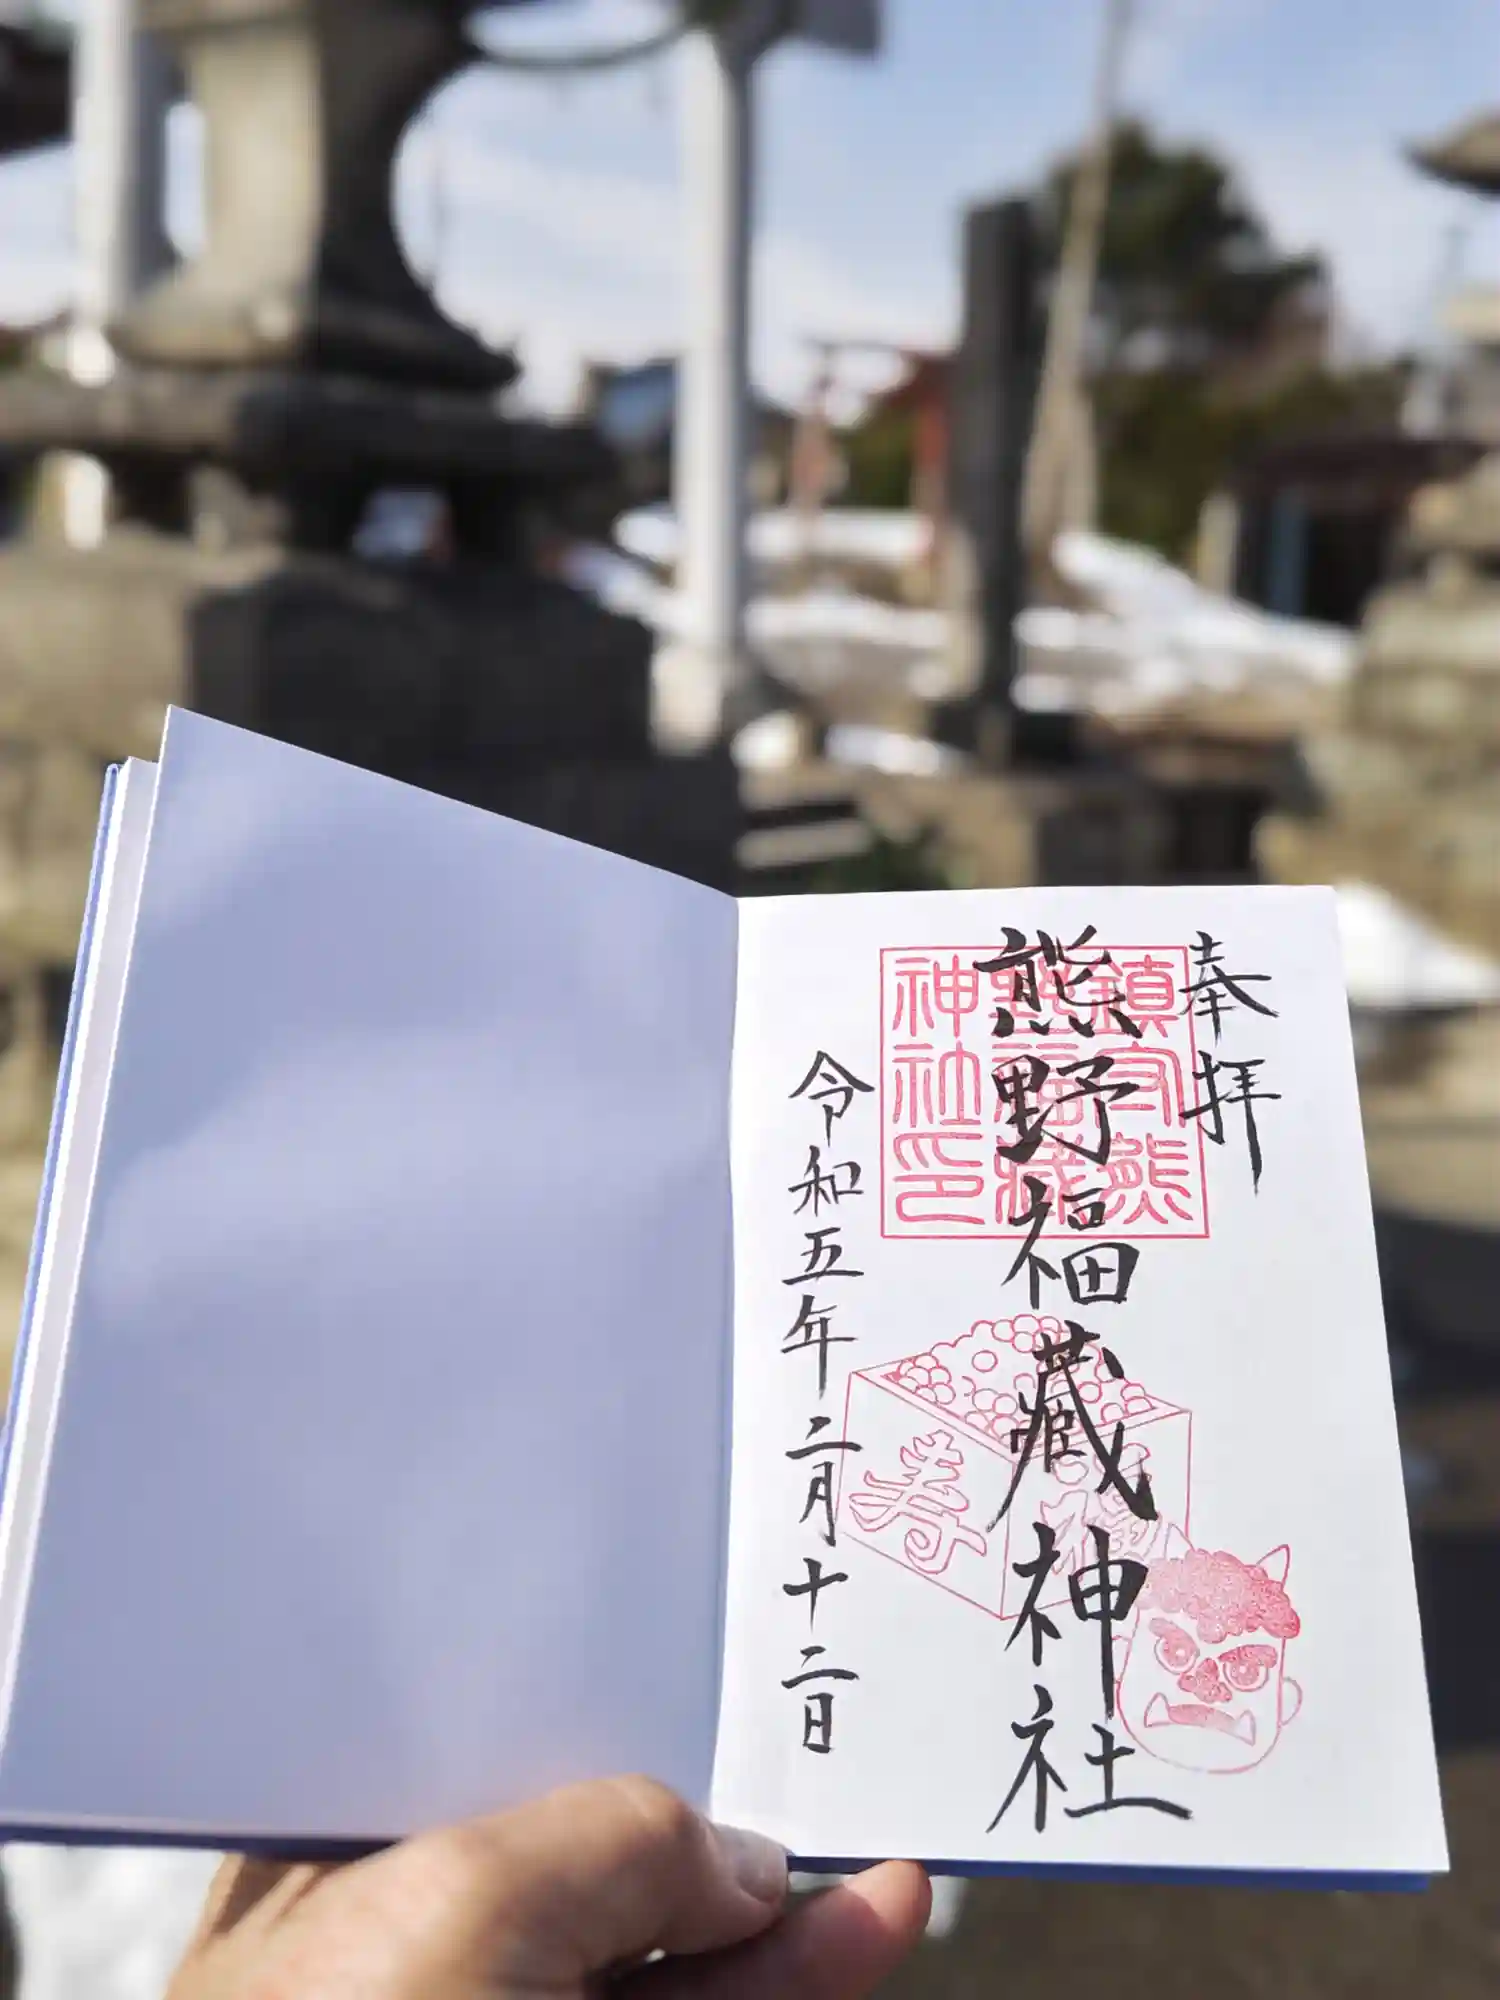 奉拝
熊野福蔵神社
鎮守熊
野福蔵
神社印
福
寿
令和五年二月十二日